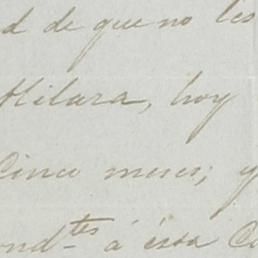 d de que no les
Milara, hoy
Cinco meses; y
ond-tes á ésa Co